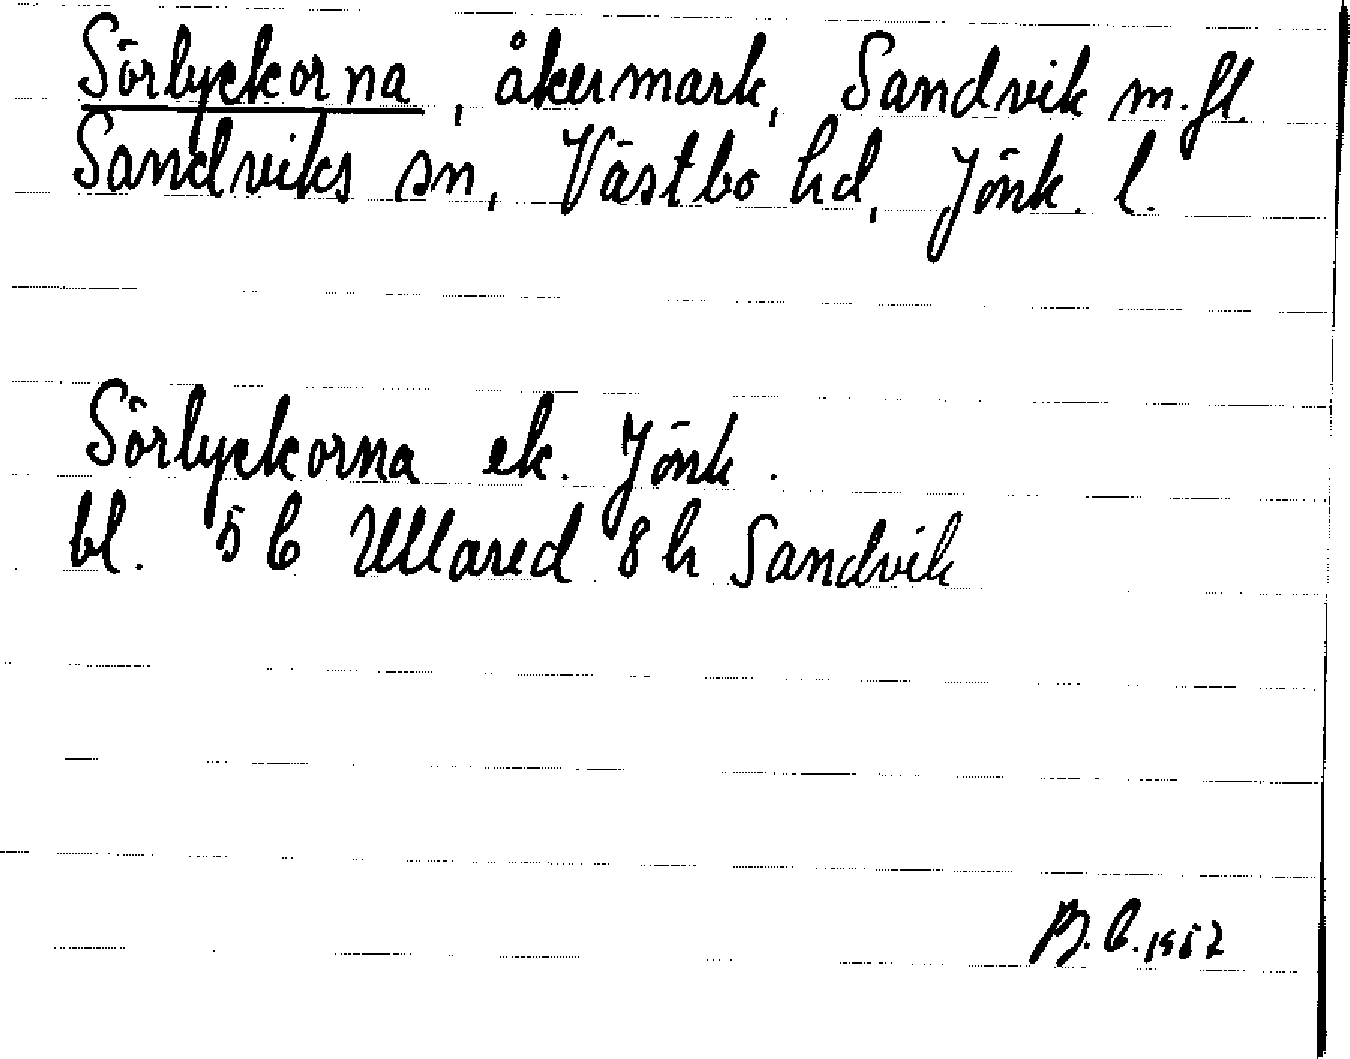 Sörlyckorna, åkermark, Sandvik m.fl.
Sandviks sn, Västbo hd, Jönk. l.
Sörlyckorna ek. Jönk.
bl. 5 C Ullared 8 h Sandvik